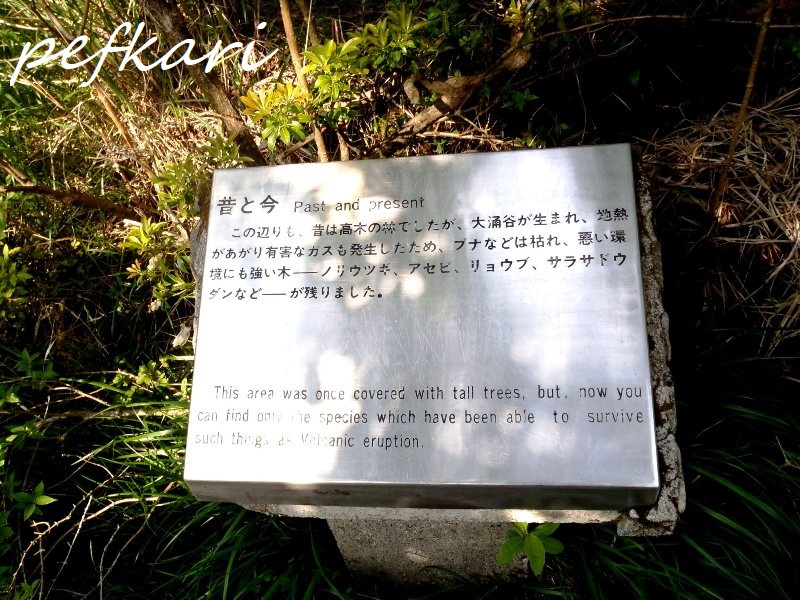 pefkari
昔と今 Past and present
この辺りも、昔は高木の林でしたが、大涌谷が生まれ、地熱
があがり有害なガスも発生したため、ブナなどは枯れ、悪い環
境にも強い木――ノリウツギ、アセビ、リョウブ、サラサドウ
ダンなど――が残りました。
This area was once covered with tall trees, but, now you
can find only the species which have been able to survive
such things as Volcanic eruption.